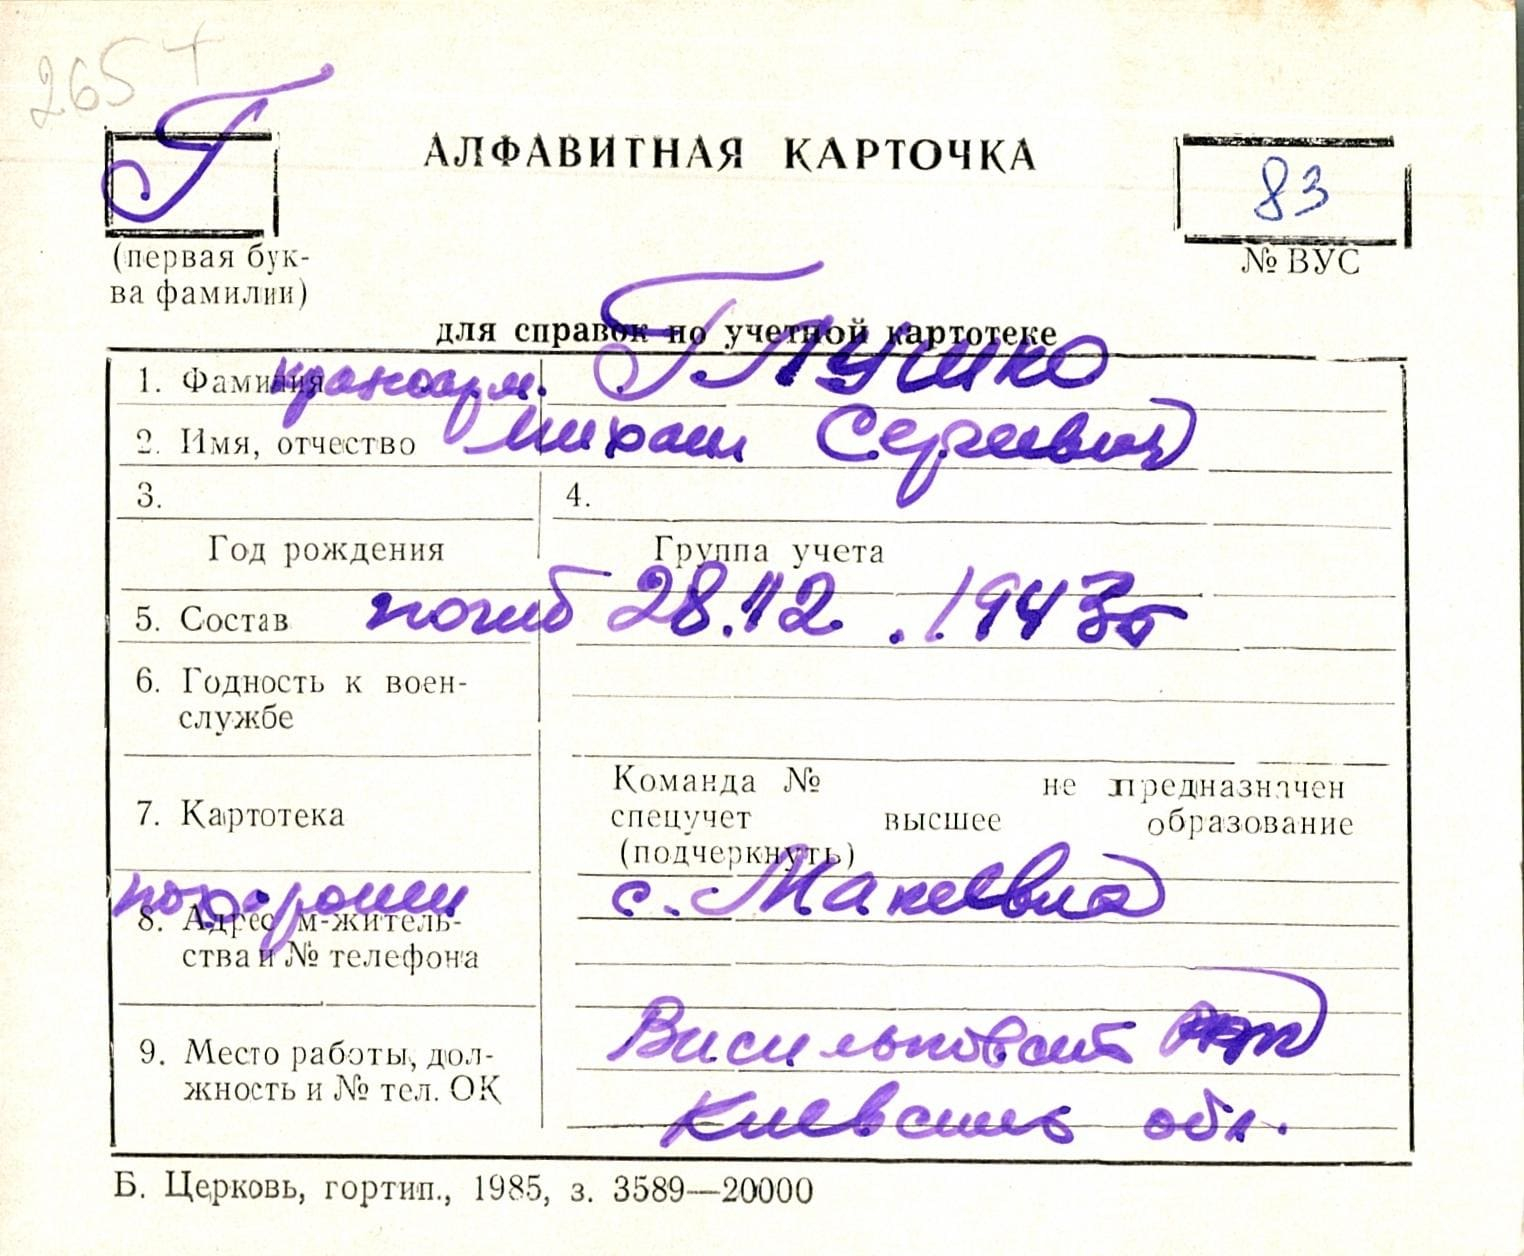 265 +
Г
АЛФАВИТНАЯ КАРТОЧКА
83
(первая бук-
ва фамилии)
№ ВУС
для справок по учетной картотеке
1. Фамилия красноарм. Глушко
2. Имя, отчество Михаил Сергеевич
3. 4.
Год рождения Группа учета
5. Состав погиб 28.12.1943г
6. Годность к воен-
службе
7. Картотека
Команда № не предназначен
спецучет высшее образование
(подчеркнуть)
похоронен с. Макеевка
8. Адрес м-житель-
ства и № телефона
9. Место работы, дол-
жность и № тел. ОК
Васильковский
Киевской обл.
Б. Церковь, гортип., 1985, з. 3589—20000